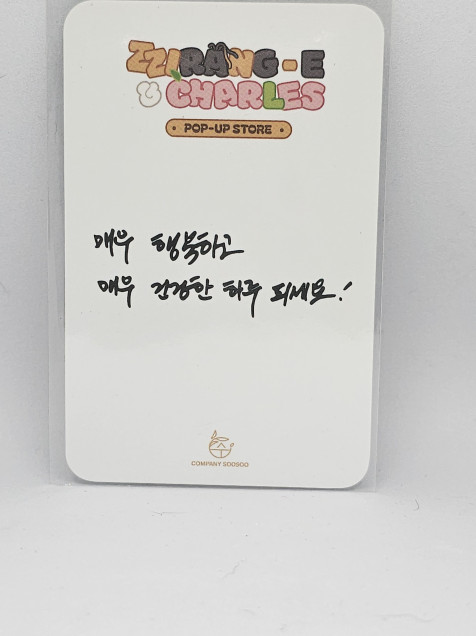 ZZIRANG-E
U CHARLES
• POP-UP STORE •
매우 행복하고
매우 건강한 하루 되세요!
수
COMPANY SOOSOO